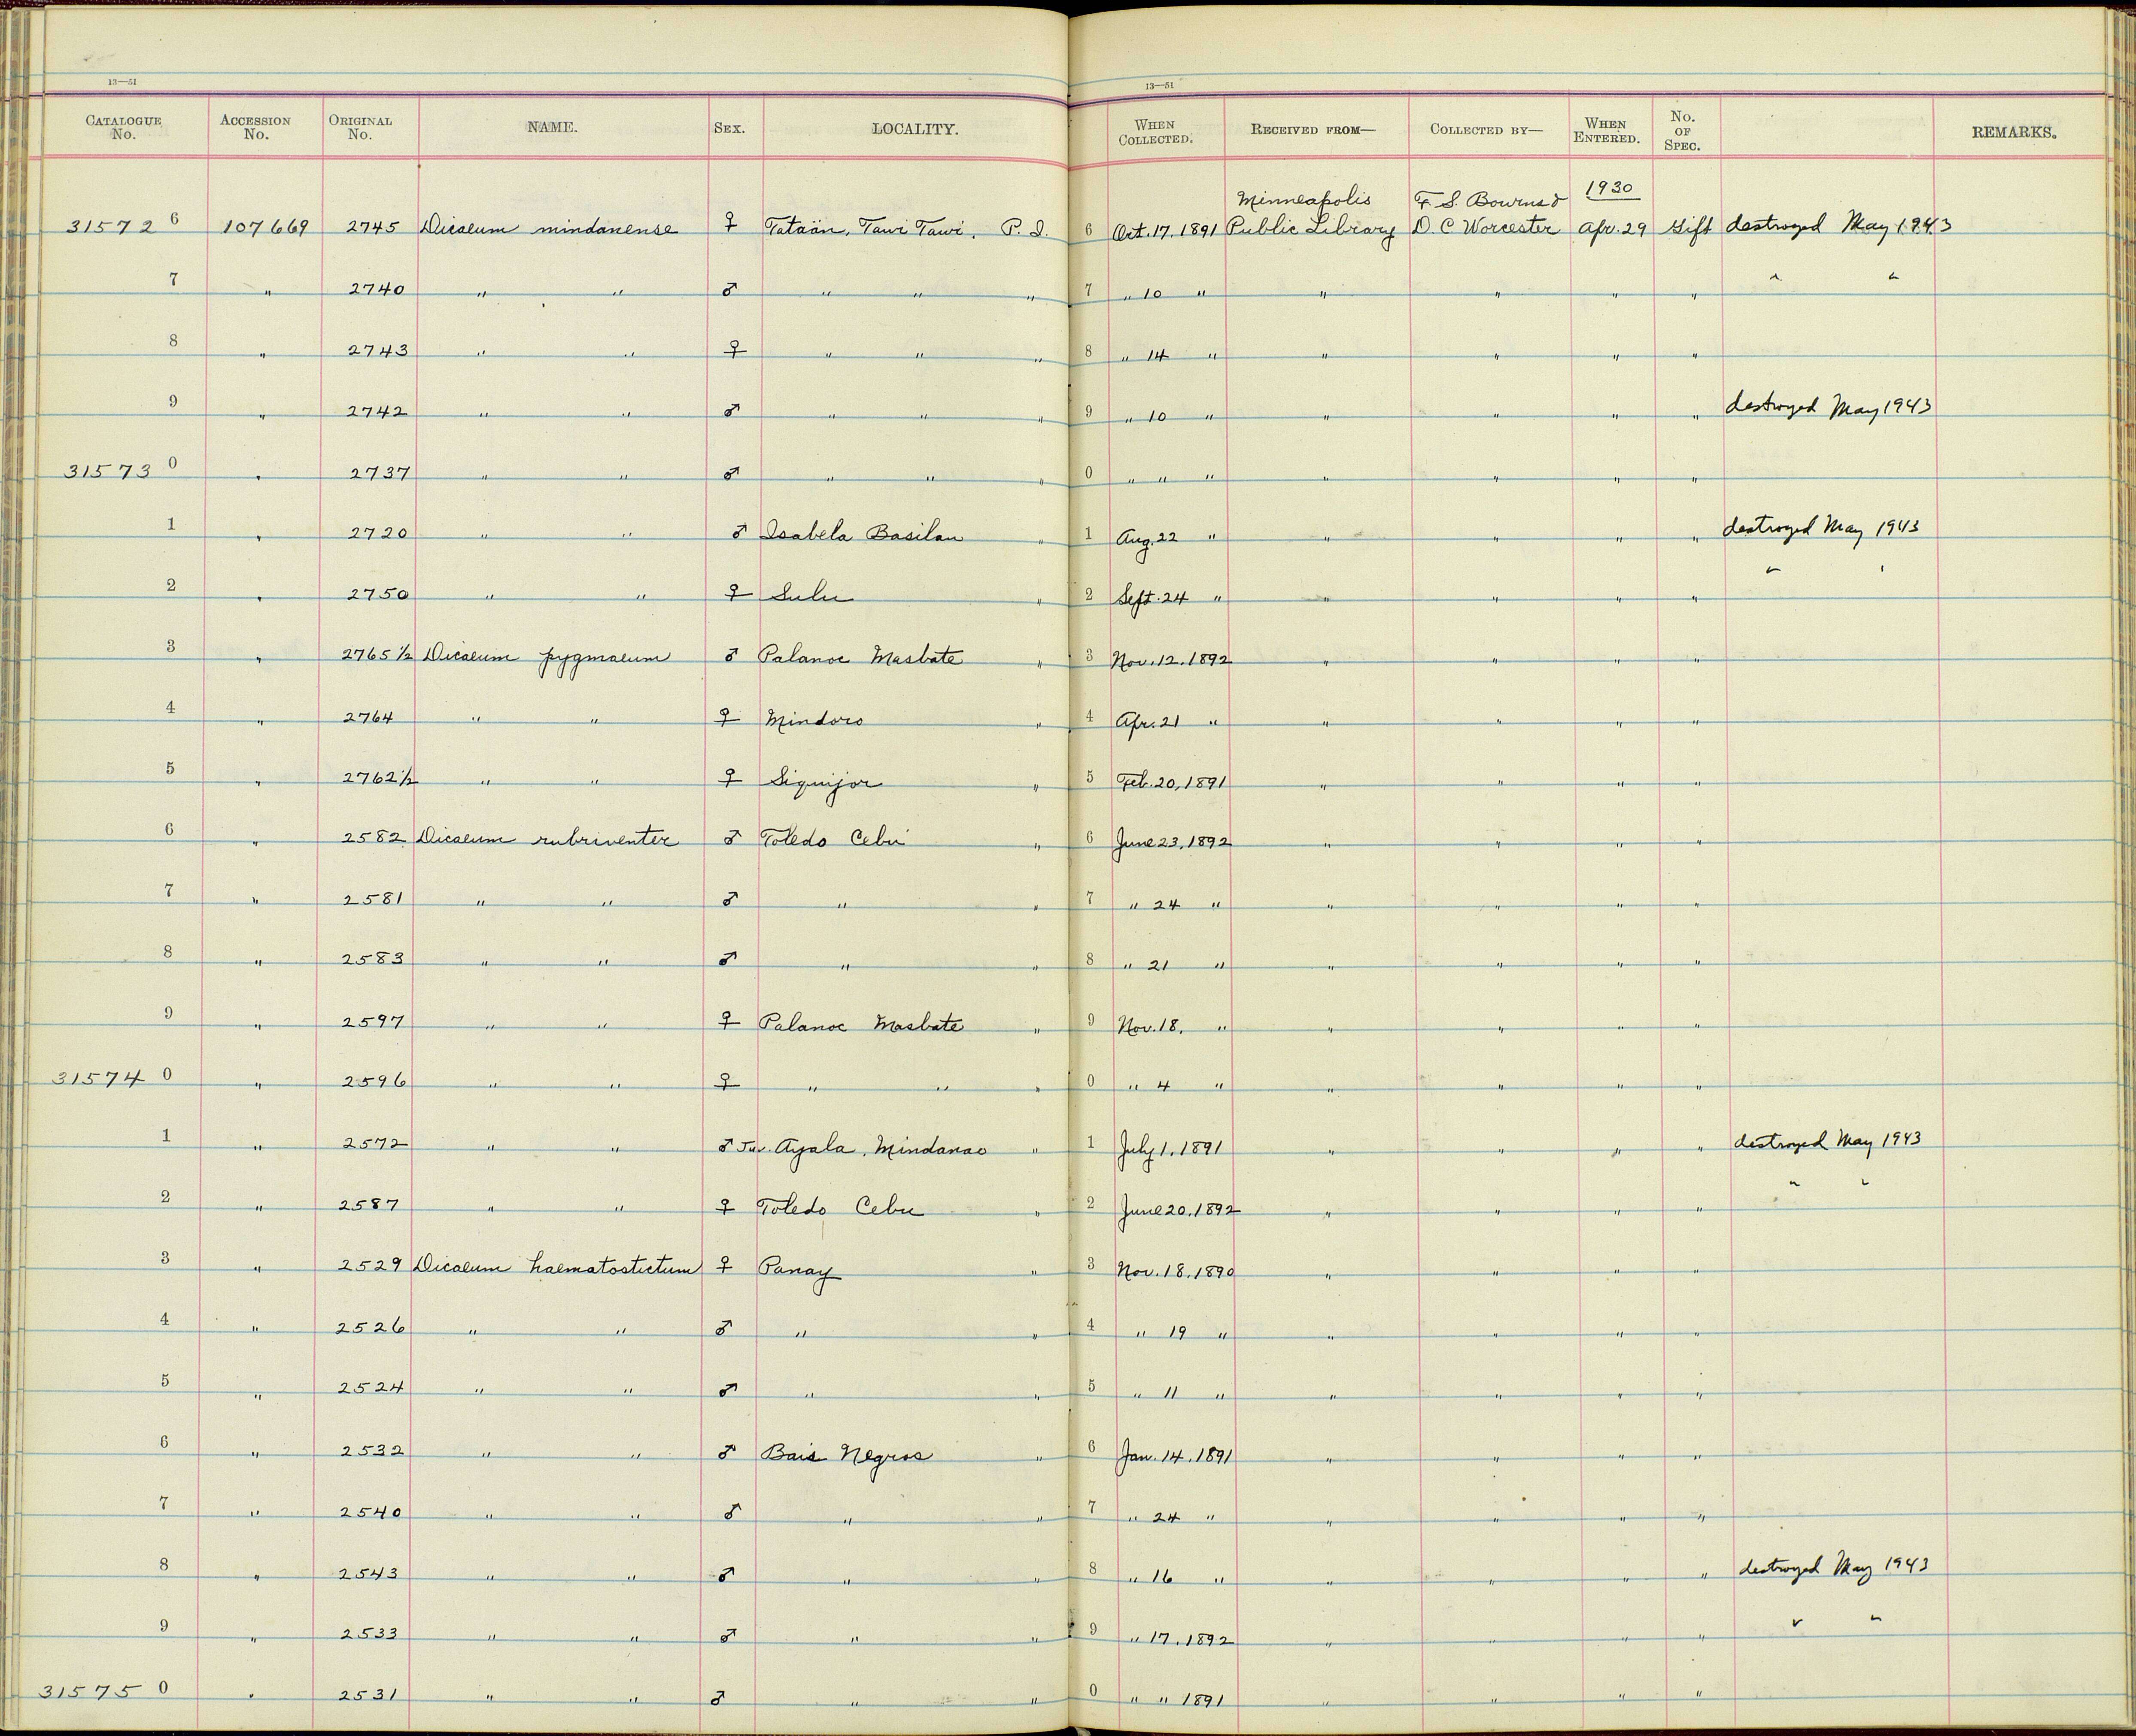 13—51 13—51
CATALOGUE No. ACCESSION No. ORIGINAL No. NAME. SEX. LOCALITY. WHEN COLLECTED. RECEIVED FROM— COLLECTED BY— WHEN ENTERED. No. OF SPEC. REMARKS.
Minneapolis F. S. Bourns & 1930
31572 6 107669 2745 Dicaeum mindanense ♀ Tataän, Tawi Tawi, P. I. 6 Oct. 17, 1891 Public Library D. C Worcester Apr. 29 Gift destroyed May 1943
7 " 2740 " " ♂ " " " 7 " 10 " " " " " " "
8 " 2743 " " ♀ " " " 8 " 14 " " " " "
9 " 2742 " " ♂ " " " 9 " 10 " " " " " destroyed May 1943
31573 0 " 2737 " " ♂ " " " 0 " " " " " " "
1 " 2720 " " ♂ Isabela Basilan " 1 Aug. 22 " " " " " destroyed May 1943
2 " 2750 " " ♀ Sulu " 2 Sept. 24 " " " " " " "
3 " 2765 1/2 Dicaeum pygmaeum ♂ Palanoc Masbate " 3 Nov. 12. 1892 " " " "
4 " 2764 " " ♀ Mindoro " 4 Apr. 21 " " " " "
5 " 2762 1/2 " " ♀ Siquijor " 5 Feb. 20, 1891 " " " "
6 " 2582 Dicaeum rubriventer ♂ Toledo Cebu " 6 June 23, 1892 " " " "
7 " 2581 " " ♂ " " 7 " 24 " " " " "
8 " 2583 " " ♂ " " 8 " 21 " " " " "
9 " 2597 " " ♀ Palanoc Masbate " 9 Nov. 18. " " " " "
31574 0 " 2596 " " ♀ " " " 0 " 4 " " " " "
1 " 2572 " " ♂ Juv. Ayala, Mindanao " 1 July 1, 1891 " " " " destroyed May 1943
2 " 2587 " " ♀ Toledo Cebu " 2 June 20. 1892 " " " " " "
3 " 2529 Dicaeum haematostictum ♀ Panay " 3 Nov. 18. 1890 " " " "
4 " 2526 " " ♂ " " 4 " 19 " " " " "
5 " 2524 " " ♂ " " 5 " 11 " " " " "
6 " 2532 " " ♂ Bais Negros " 6 Jan. 14. 1891 " " " "
7 " 2540 " " ♂ " " 7 " 24 " " " " "
8 " 2543 " " ♂ " " 8 " 16 " " " " " destroyed May 1943
9 " 2533 " " ♂ " " 9 " 17. 1892 " " " " " "
31575 0 " 2531 " " ♂ " " 0 " " 1891 " " " "